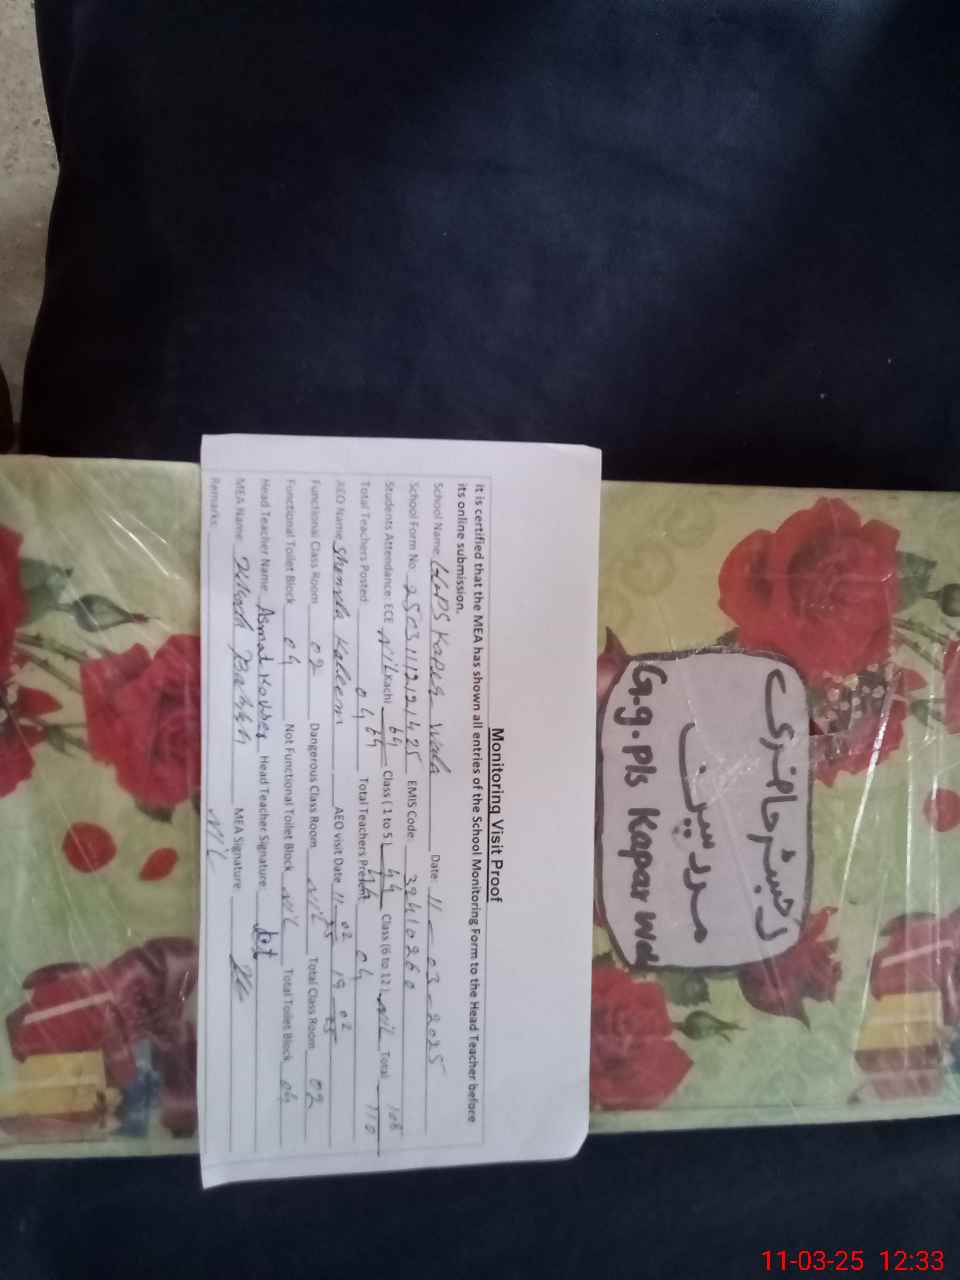 Monitoring Visit Proof
It is certified that the MEA has shown all entries of the School Monitoring Form to the Head Teacher before
its online submission.
School Name GGPS Kaper Wala Date: 11-03-2025
School Form No: EMIS Code: 32410260
Students Attendance: ECE Nil Kachi 64 Class (1 to 5) 44 Class (6 to 12) Nil Total 108 110
Total Teachers Posted: 04 Total Teachers Present 04
AEO Name Kaleem AEO visit Date 11-02-25 19-02-25
Functional Class Room 02 Dangerous Class Room Nil Total Class Room 02
Functional Toilet Block 04 Not Functional Toilet Block Nil Total Toilet Block 04
Head Teacher Name Asmat Head Teacher Signature:
MEA Name: MEA Signature:
Remarks: Nil
رجسٹر حاضری
مدرسین
G.g.pls Kapar wala
11-03-25 12:33